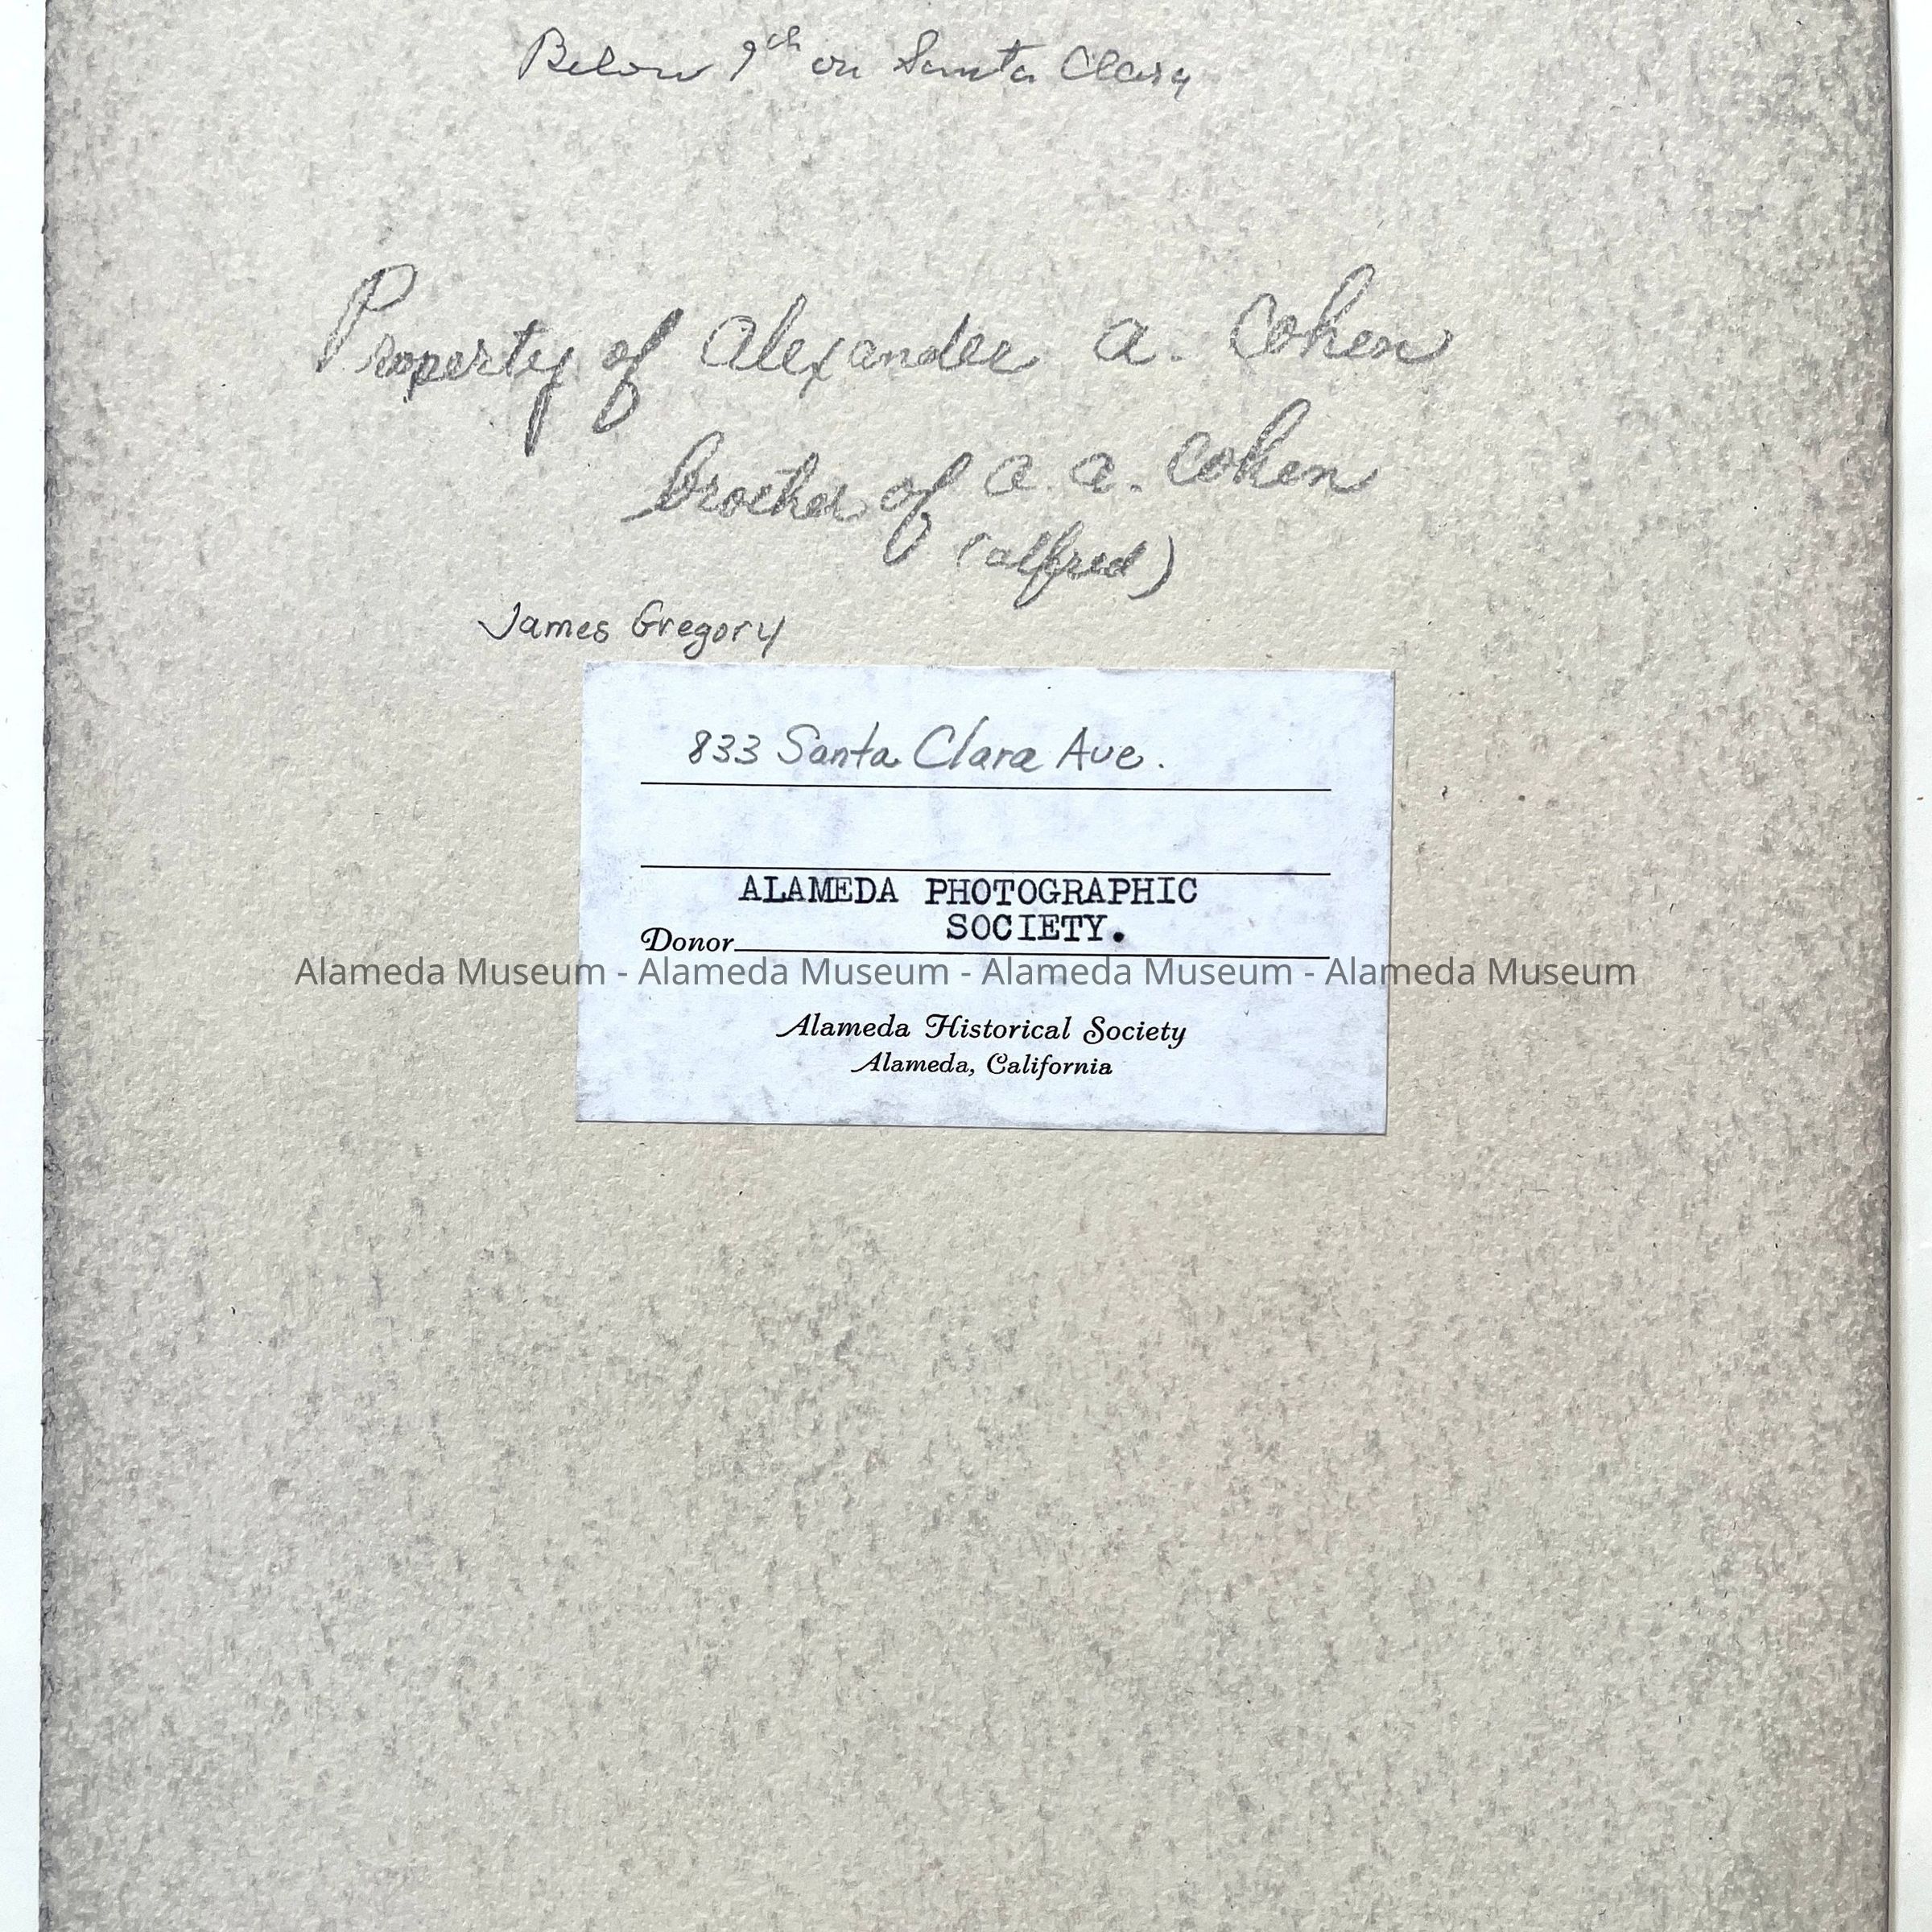 Below 9th on Santa Clara
Property of Alexander A. Cohen
brother of A. A. Cohen
(alfred)
James Gregory
833 Santa Clara Ave.
ALAMEDA PHOTOGRAPHIC
SOCIETY.
Donor
Alameda Museum - Alameda Museum - Alameda Museum - Alameda Museum
Alameda Historical Society
Alameda, California